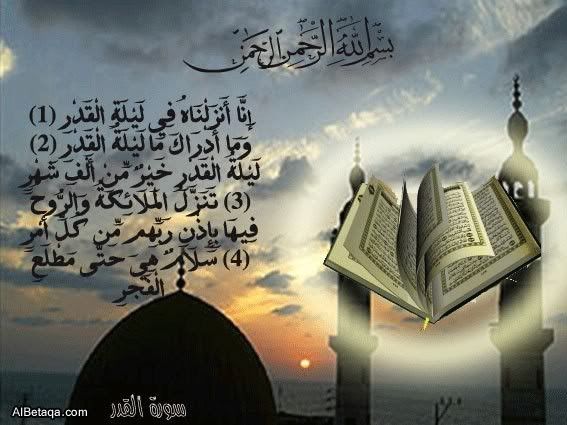 بِسْمِ اللَّهِ الرَّحْمَنِ الرَّحِيمِ
إِنَّا أَنزَلْنَاهُ فِي لَيْلَةِ الْقَدْرِ (1)
وَمَا أَدْرَاكَ مَا لَيْلَةُ الْقَدْرِ (2)
لَيْلَةُ الْقَدْرِ خَيْرٌ مِّنْ أَلْفِ شَهْرٍ
(3) تَنَزَّلُ الْمَلَائِكَةُ وَالرُّوحُ
فِيهَا بِإِذْنِ رَبِّهِم مِّن كُلِّ أَمْرٍ
(4) سَلَامٌ هِيَ حَتَّى مَطْلَعِ
الْفَجْرِ
سورة القدر
AlBetaqa.com